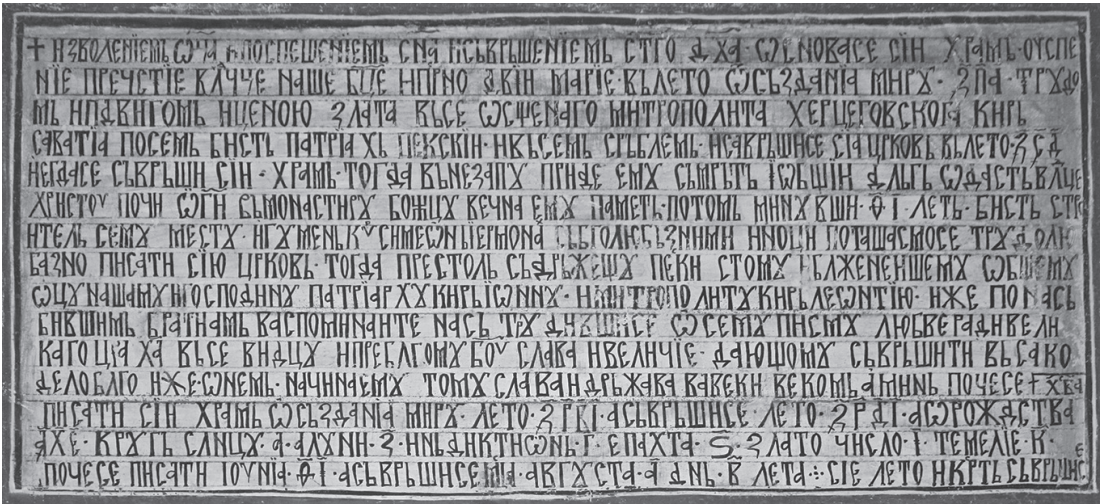 + ИЗВОЛЕНЇЕМЬ ѾЧА ИПОСПЕШЕНЇЕМЬ СНА ИСЬВРЬШЕНЇЕМЬ СТГО ДХА · ѠБНОВАСЕ СЇИ ХРАМЬ · ОУСПЕ
НЇЕ ПРЕЧСТЇЕ ВЛЧЧЕ НАШЕ БЦЕ ИПРНО ДВИ МАРЇЕ · ВЬЛЕТО ѾСЬЗДАНЇА МИРꙊ · ЗПА · ТРꙊДО
МЬ ИПДВИГОМЬ ИЦЕНОЮ ЗЛАТА ВЬСЕ ѠСЩЕНАГО МИТРОПОЛИТА ХЕРЦЕГОВСКОГА КИРЬ
САВАТЇА ПОСЕМЬ БИСТЬ ПАТРЇАХЬ ПЕКСКЇИ · ИВЬСЕМЬ СРЬБЛЕМЬ · ИСАВРЬШИСЕ СЇА ЦРКОВЬ ВЬЛЕТО · З СД
НЕГДАСЕ СЬВРЬШИ СЇИ · ХРАМЬ · ТОГДА ВЬНЕЗАПꙊ ПРИДЕ ЕМꙊ СЬМРЬТЬ ЇѠБШЇИ ДЛЬГЬ ѠДАСТЬ ВЛЦЕ
ХРИСТОУ ПОЧИ ѠГИ ВЬМОНАСТИРꙊ БОЖЦꙊ ВЕЧНА ЕМꙊ ПАМЕТЬ · ПОТОМЬ МИНꙊВШИ · ѲЇ · ЛЕТЬ · БИСТЬ СТРО
ИТЕЛЬ СЕМꙊ МЕСТꙊ · ИГꙊМЕНЬ КУ СИМЕѠНЬ ЇЕРМОНА СЬБГОЛЮБЬЗНИМИ ИНОЦИ ПОТАШАСМОСЕ ТРꙊДОЛЮ
БАЗНО ПИСАТИ СЇЮ ЦРКОВЬ · ТОГДА ПРЕСТОЛЬ СЬДРЬЖЕЩꙊ ПЕКИ СТОМꙊ ИБЛЖЕНЕИШЕМꙊ ѠБЩЕМꙊ
ѠЦꙊ НАШАМꙊ ИГОСПОДИНꙊ ПАТРЇАРХꙊ КИРЬ ЇѠННꙊ · ИМИТРОПОЛИТꙊ КИРЬ ЛЕѠНТЇЮ · ИЖЕ ПО НАСЬ
БИВШИМЬ БРАТИАМЬ ВАСПОМИНАИТЕ НАСЬ ТРꙊДИВШИСЕ Ѡ СЕМꙊ ПИСМꙊ ЛЮБВЕ РАДИ ВЕЛИ
КАГО ЦРА ХА ВЬСЕ ВИДЦꙊ ИПРЕБЛГОМꙊ БОУ СЛАВА ИВЕЛИЧЇЕ · ДАЮЩОМꙊ СЬВРЬШИТИ ВЬСАКО
ДЕЛО БЛГО ИЖЕ · ѠНЕМЬ · НАЧИНАЕМꙊ ТОМꙊ СЛАВА ИДРЬЖАВА ВАВЕКИ ВЕКОМЬ АМИНЬ ПОЧЕСЕ + ХВА
ПИСАТИ СЇИ ХРАМЬ ѾСЬЗДАНЇА МИРꙊ · ЛЕТО · З РВЇ · АСЬВРЬШИСЕ ЛЕТО · З РДЇ · АѾРОЖДАСТВА
АХЕ · КРꙊГЬ СЛНЦꙊ · А · АЛꙊНИ · З · ИНЬДИКТИѠНЬ · Г · ЕПАХТА · Ѕ · ЗЛАТО ЧИСЛО · Ї · ТЕМЕЛЇЕ · К ·
ПОЧЕСЕ ПИСАТИ ЇОУНЇА · ѲЇ · АСЬВРЬШИСЕ МЦА · АВГꙊСТА · А · ДНЬ · В ЛЕТА · СЇЕ ЛЕТО И КРТЬ СЬВРЬШИСЕ